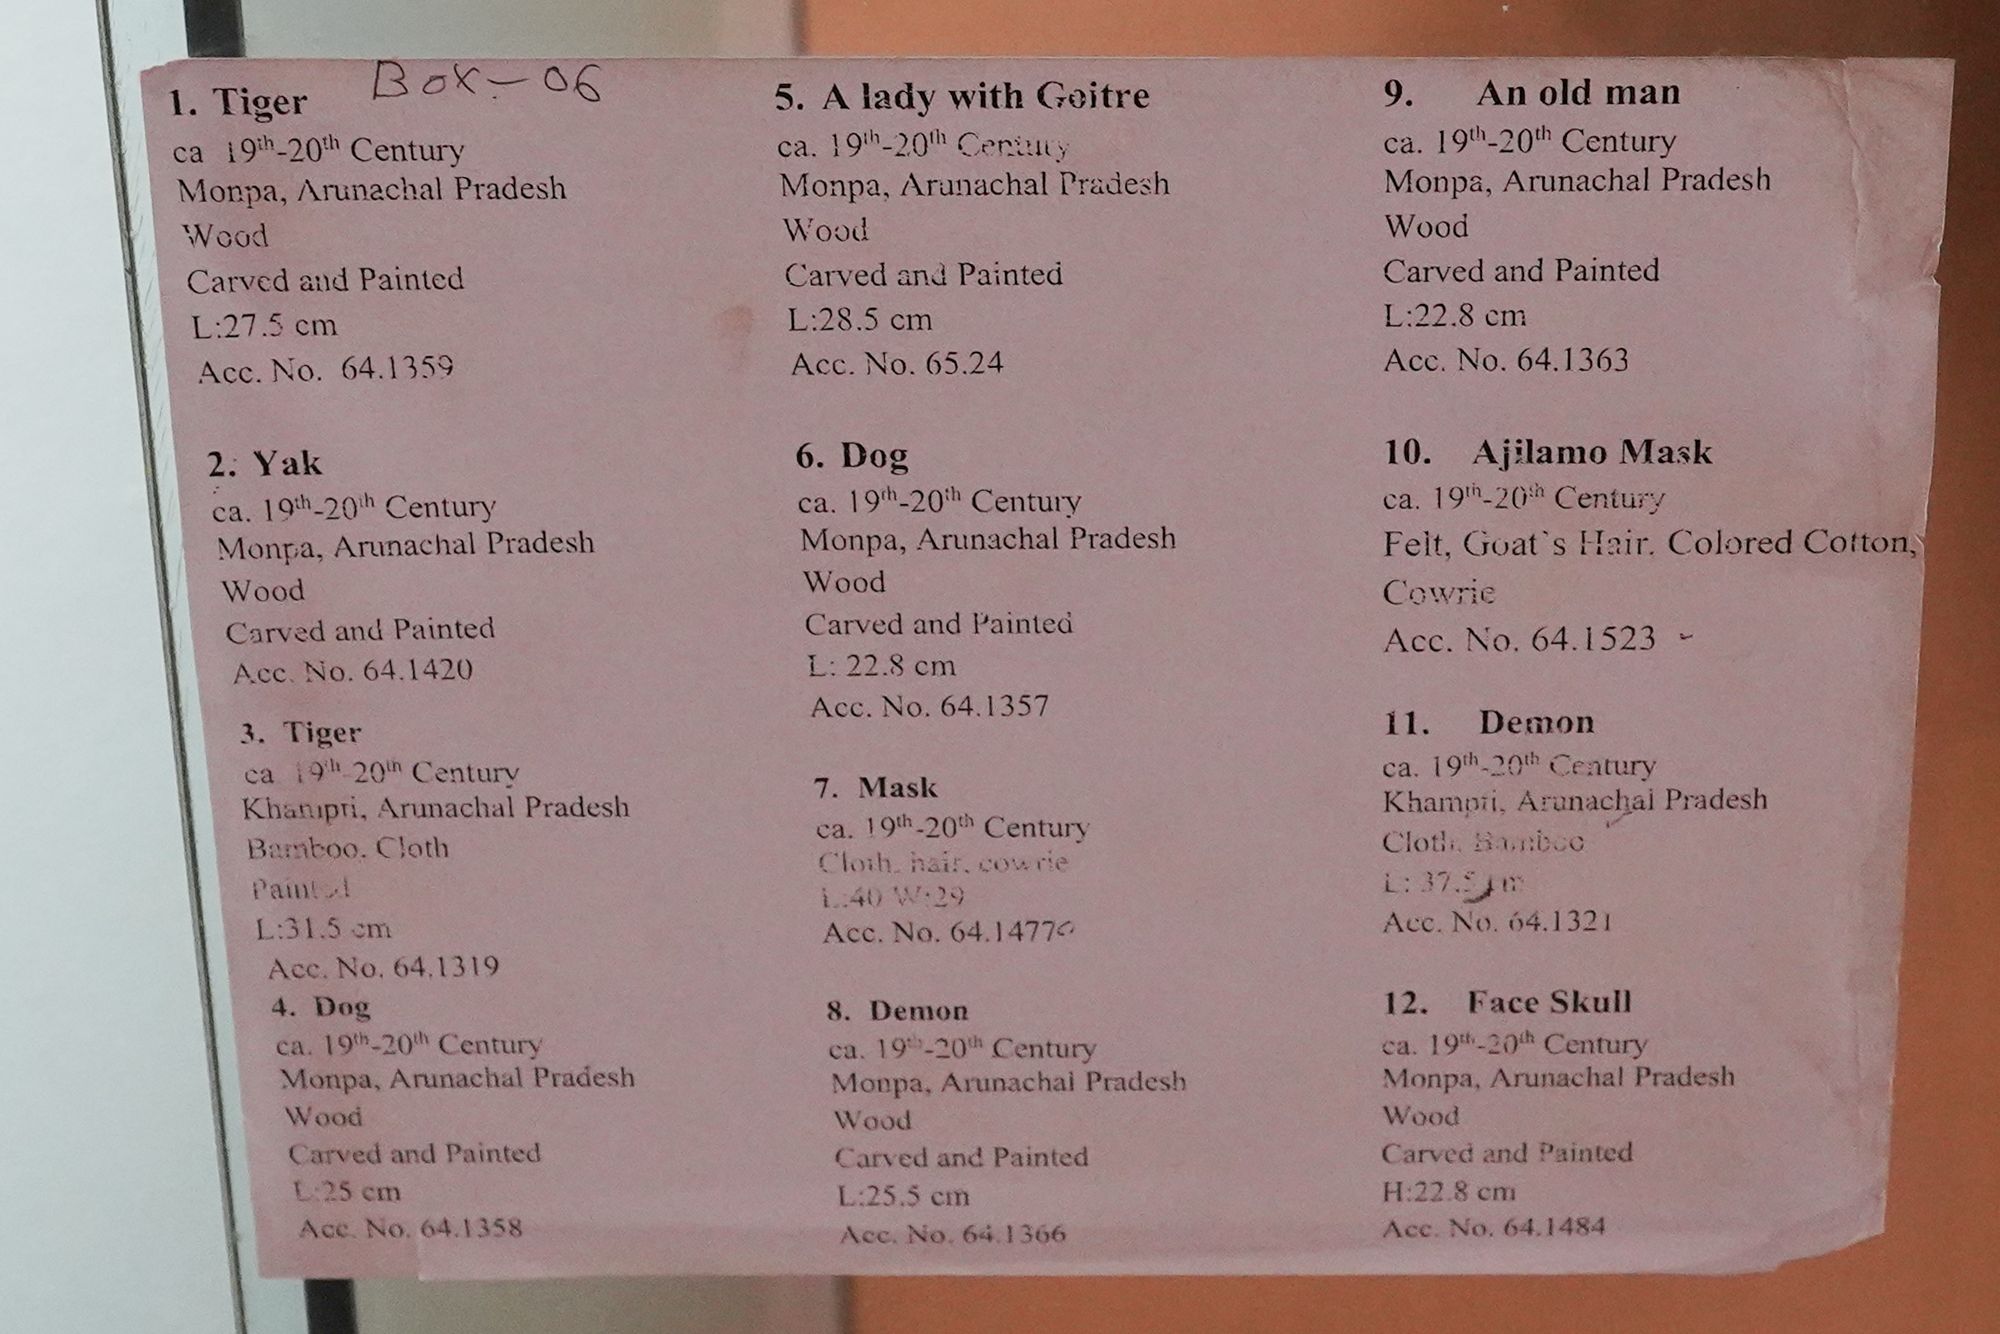 Box-06
1. Tiger
ca 19th-20th Century
Monpa, Arunachal Pradesh
Wood
Carved and Painted
L:27.5 cm
Acc. No. 64.1359
2. Yak
ca. 19th-20th Century
Monpa, Arunachal Pradesh
Wood
Carved and Painted
Acc. No. 64.1420
3. Tiger
ca 19th-20th Century
Khampti, Arunachal Pradesh
Bamboo, Cloth
Painted
L:31.5 cm
Acc. No. 64.1319
4. Dog
ca. 19th-20th Century
Monpa, Arunachal Pradesh
Wood
Carved and Painted
L:25 cm
Acc. No. 64.1358
5. A lady with Goitre
ca. 19th-20th Century
Monpa, Arunachal Pradesh
Wood
Carved and Painted
L:28.5 cm
Acc. No. 65.24
6. Dog
ca. 19th-20th Century
Monpa, Arunachal Pradesh
Wood
Carved and Painted
L: 22.8 cm
Acc. No. 64.1357
7. Mask
ca. 19th-20th Century
Cloth, hair, cowrie
L:40 W:29
Acc. No.
8. Demon
ca. 19th-20th Century
Monpa, Arunachal Pradesh
Wood
Carved and Painted
L:25.5 cm
Acc. No. 64.1366
9. An old man
ca. 19th-20th Century
Monpa, Arunachal Pradesh
Wood
Carved and Painted
L:22.8 cm
Acc. No. 64.1363
10. Ajilamo Mask
ca. 19th-20th Century
Felt, Goat's Hair, Colored Cotton,
Cowrie
Acc. No. 64.1523
11. Demon
ca. 19th-20th Century
Khampti, Arunachal Pradesh
Cloth, Bamboo
L: 37.5 cm
Acc. No. 64.1321
12. Face Skull
ca. 19th-20th Century
Monpa, Arunachal Pradesh
Wood
Carved and Painted
H:22.8 cm
Acc. No. 64.1484